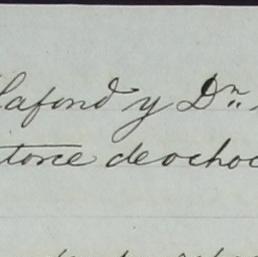 Lafond y Dn.
torce de ochoc